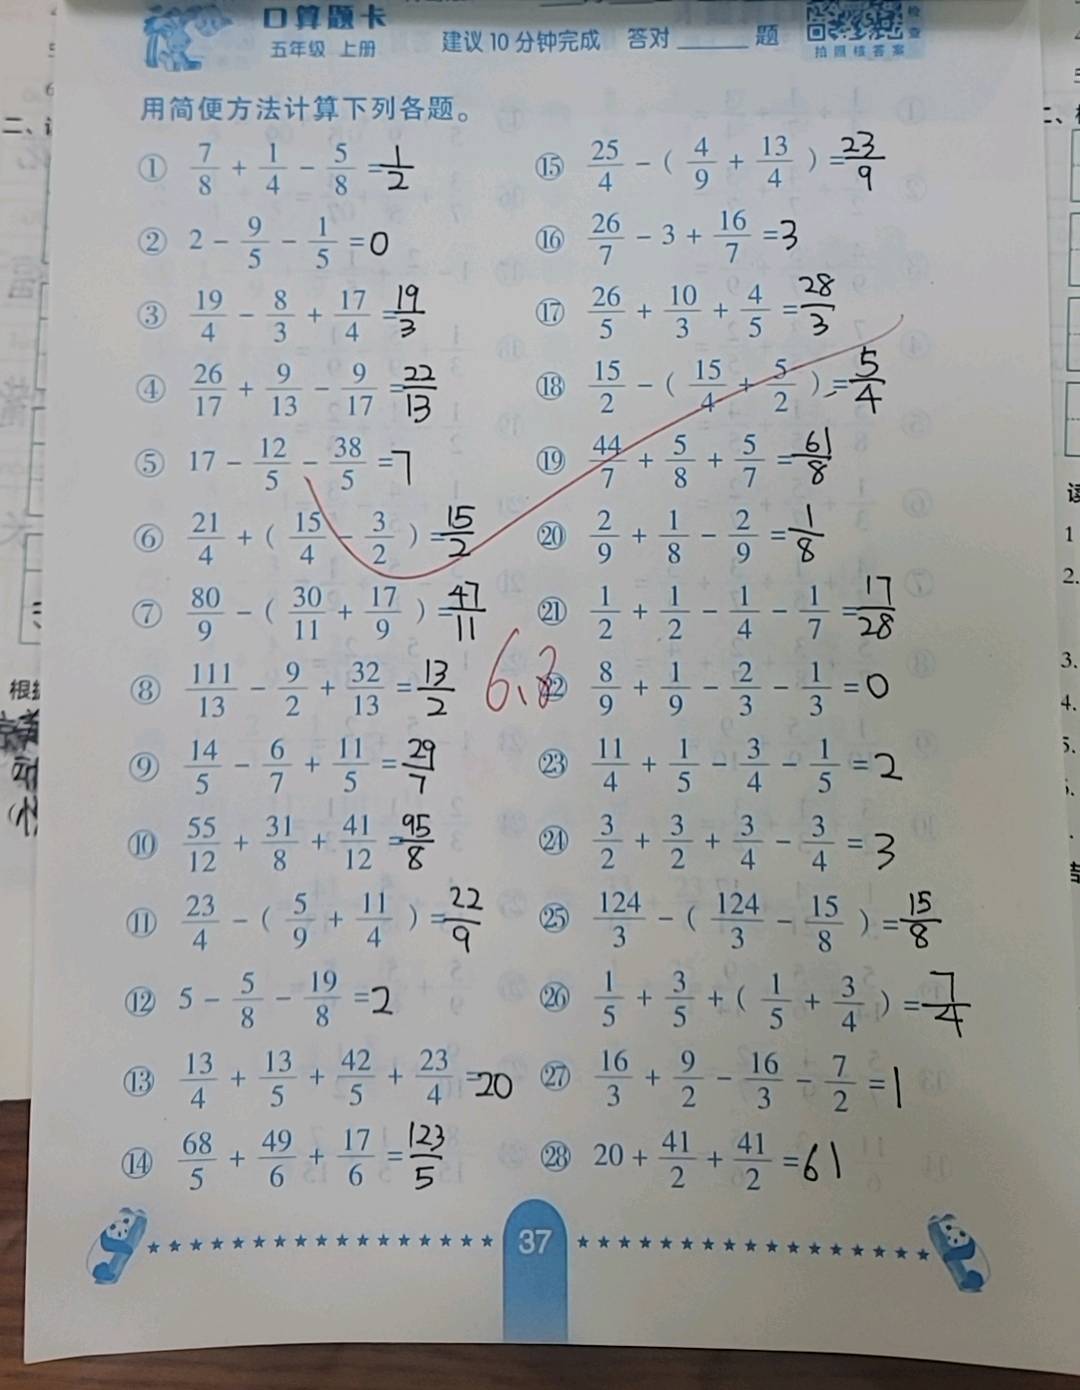 口算题卡
五年级 上册
建议10分钟完成 答对______题
拍照核答案
检查
用简便方法计算下列各题。
① 7/8 + 1/4 - 5/8 = 1/2
② 2 - 9/5 - 1/5 = 0
③ 19/4 - 8/3 + 17/4 = 19/3
④ 26/17 + 9/13 - 9/17 = 22/13
⑤ 17 - 12/5 - 38/5 = 7
⑥ 21/4 + ( 15/4 - 3/2 ) = 15/2
⑦ 80/9 - ( 30/11 + 17/9 ) = 47/11
⑧ 111/13 - 9/2 + 32/13 = 13/2
⑨ 14/5 - 6/7 + 11/5 = 29/7
⑩ 55/12 + 31/8 + 41/12 = 95/8
⑪ 23/4 - ( 5/9 + 11/4 ) = 22/9
⑫ 5 - 5/8 - 19/8 = 2
⑬ 13/4 + 13/5 + 42/5 + 23/4 = 20
⑭ 68/5 + 49/6 + 17/6 = 123/5
⑮ 25/4 - ( 4/9 + 13/4 ) = 23/9
⑯ 26/7 - 3 + 16/7 = 3
⑰ 26/5 + 10/3 + 4/5 = 28/3
⑱ 15/2 - ( 15/4 + 5/2 ) = 5/4
⑲ 44/7 + 5/8 + 5/7 = 61/8
⑳ 2/9 + 1/8 - 2/9 = 1/8
㉑ 1/2 + 1/2 - 1/4 - 1/7 = 17/28
㉒ 8/9 + 1/9 - 2/3 - 1/3 = 0
㉓ 11/4 + 1/5 - 3/4 - 1/5 = 2
㉔ 3/2 + 3/2 + 3/4 - 3/4 = 3
㉕ 124/3 - ( 124/3 - 15/8 ) = 15/8
㉖ 1/5 + 3/5 + ( 1/5 + 3/4 ) = 7/4
㉗ 16/3 + 9/2 - 16/3 - 7/2 = 1
㉘ 20 + 41/2 + 41/2 = 61
37